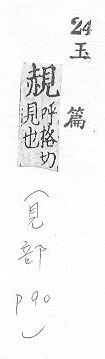 24
玉篇
呼格切
也
(見部 P90)